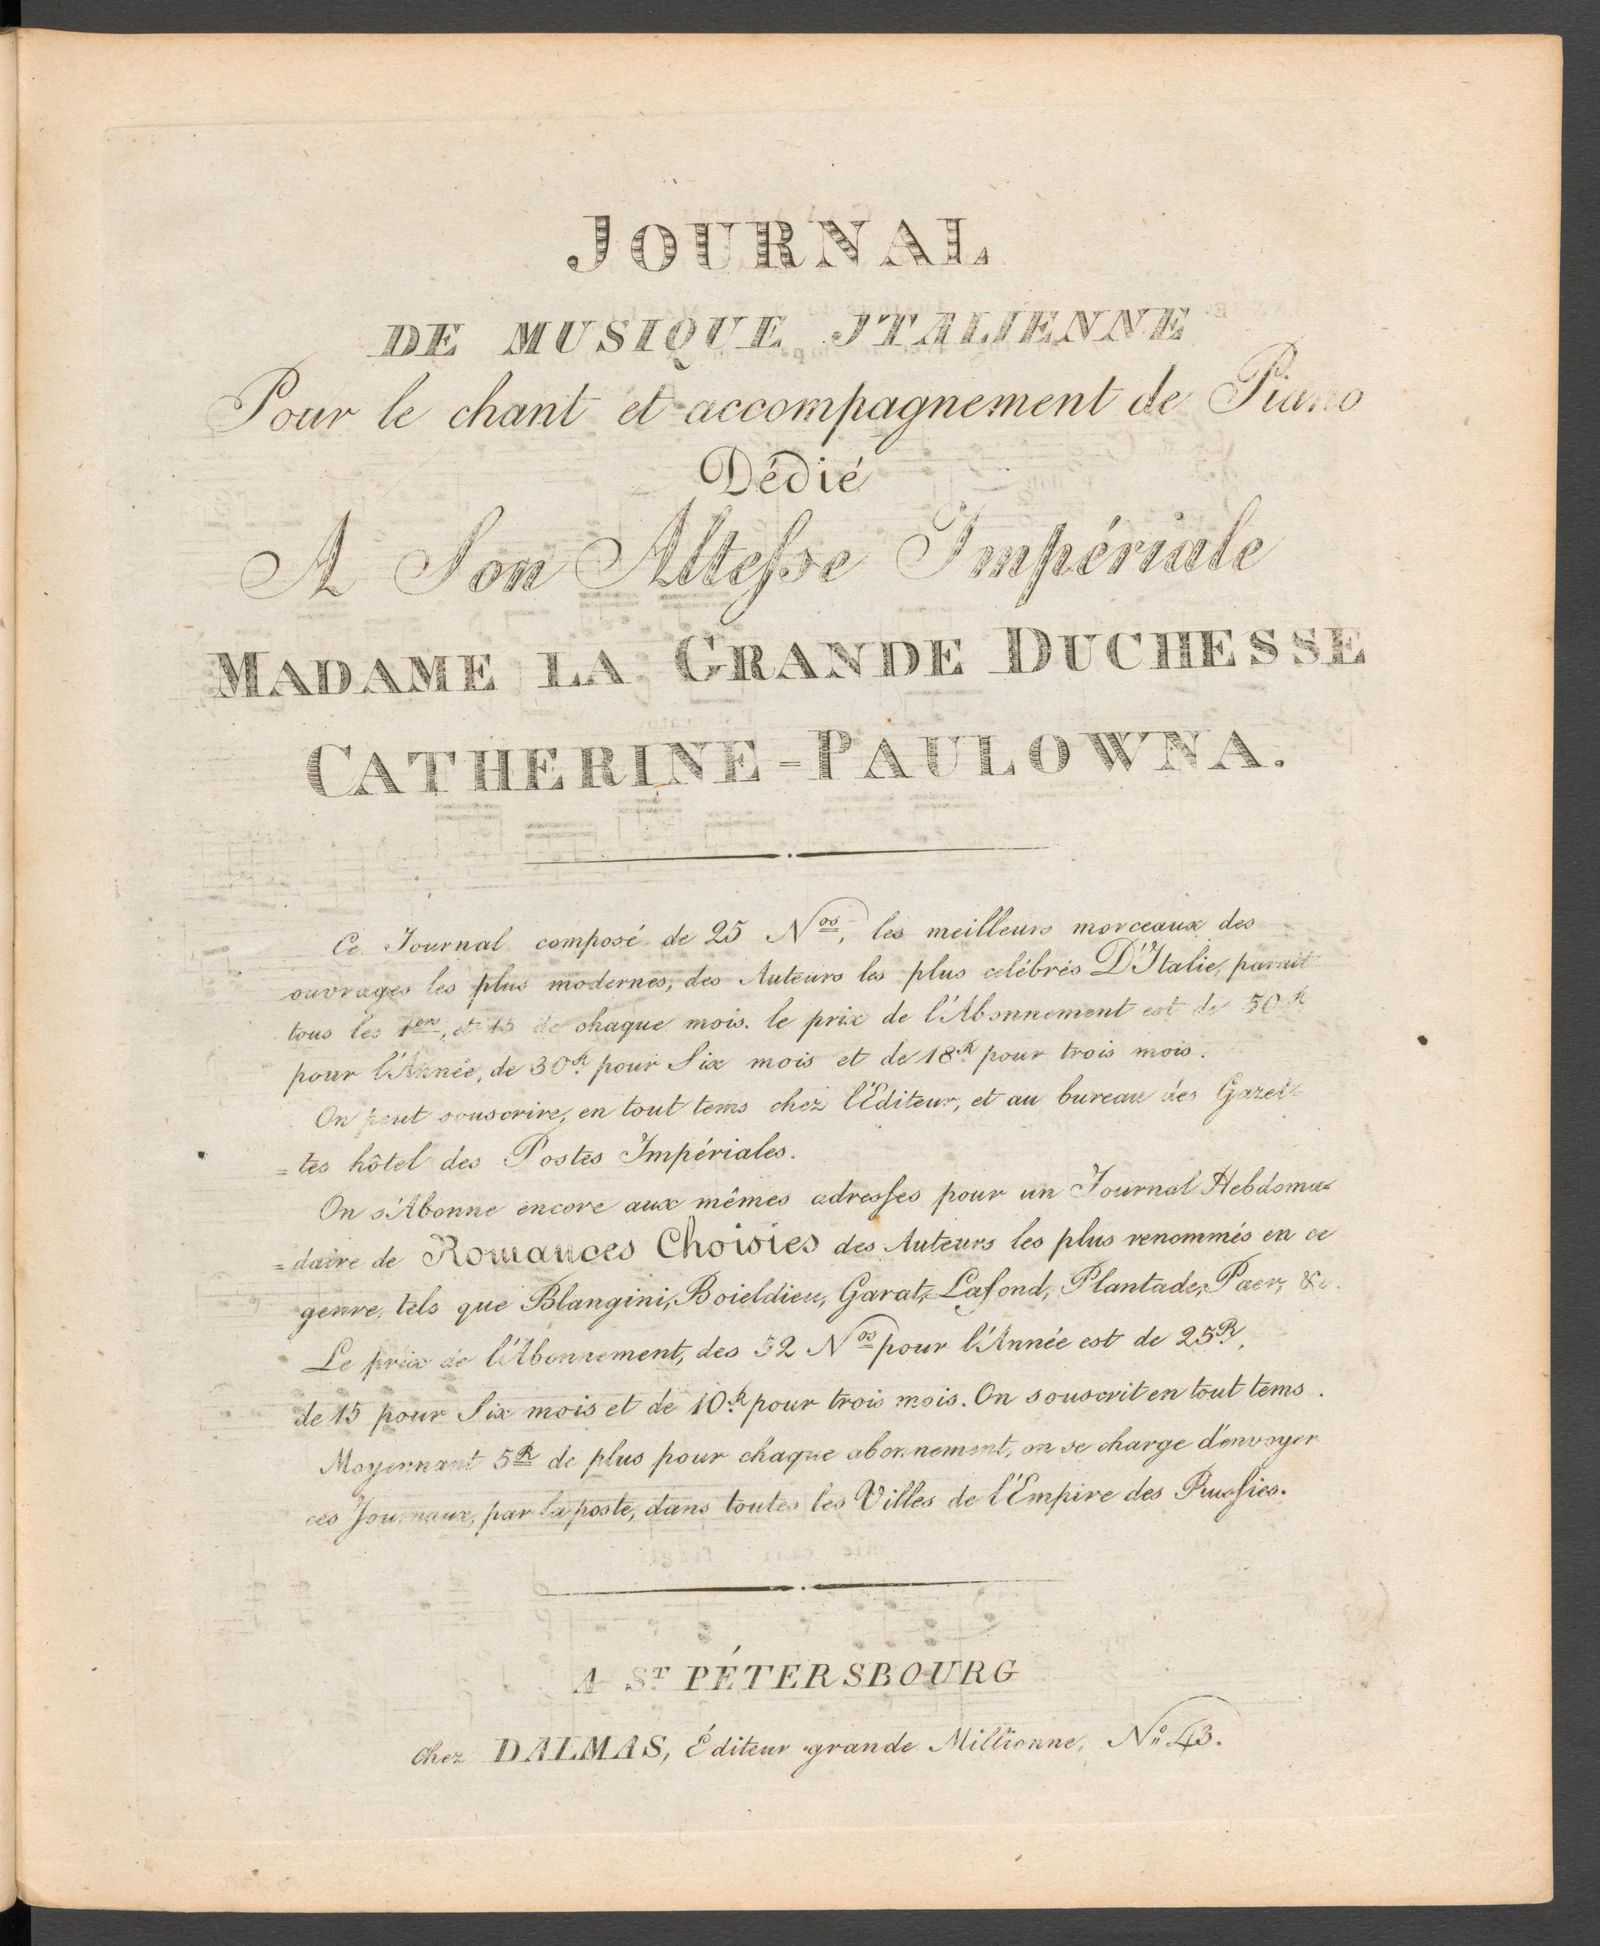 JOURNAL
DE MUSIQUE JTALIENNE
Pour le chant et accompagnement de Piano
Dédié
A Son Altesse Impériale
MADAME LA GRANDE DUCHESSE
CATHERINE-PAULOWNA.
Ce Journal composé de 25 Nos, les meilleurs morceaux des
ouvrages les plus modernes, des Auteurs les plus celébrés D'Italie, parait
tous les 1ers, et 15 de chaque mois. le prix de l'Abonnement est de 50 R
pour l'Année, de 30R pour Six mois et de 18R pour trois mois.
On peut souscrire, en tout tems chez l'Editeur, et au bureau des Gazet
=tes hôtel des Postes Impériales.
On s'Abonne encore aux mêmes adresses pour un Journal Hebdoma=
=daire de Romances Choisies des Auteurs les plus renommés en ce
genre, tels que Blangini, Boieldieu, Garat, Lafond, Plantade, Paer, &c.
Le prix de l'Abonnement, des 52 Nos pour l'Année est de 25R,
de 15 pour Six mois et de 10R pour trois mois. On souscrit en tout tems.
Moyennant 5R de plus pour chaque abonnement, on se charge d'envoyer
ces Journaux, par la poste, dans toutes les Villes de l'Empire des Russies.
A ST PÉTERSBOURG
chez DALMAS, Éditeur grande Millionne, No 43.